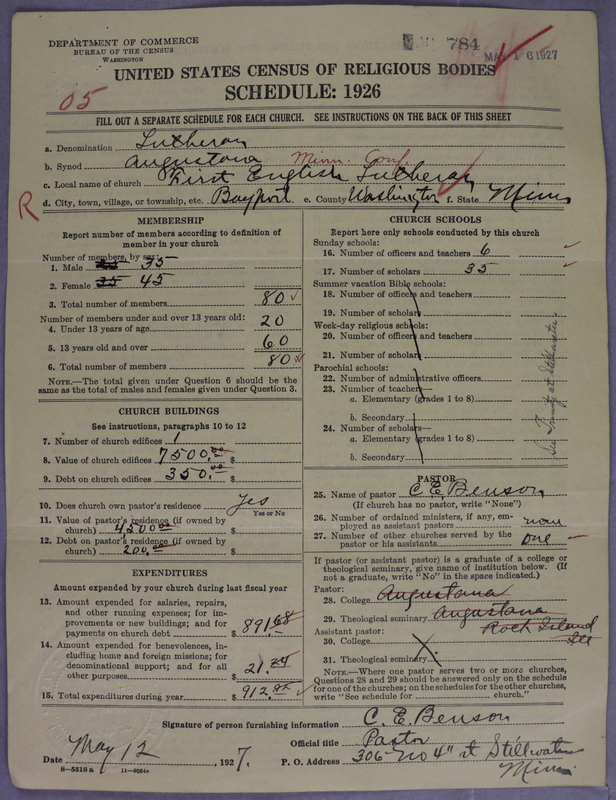 DEPARTMENT OF COMMERCE
BUREAU OF THE CENSUS
WASHINGTON
784
MAY 16 1927
UNITED STATES CENSUS OF RELIGIOUS BODIES
SCHEDULE: 1926
05
FILL OUT A SEPARATE SCHEDULE FOR EACH CHURCH. SEE INSTRUCTIONS ON THE BACK OF THIS SHEET
a. Denomination Lutheran
b. Synod Augustana Minn. Conf.
c. Local name of church First English Lutheran
d. City, town, village, or township, etc. Bayport e. County Washington f. State Minn
R
MEMBERSHIP
Report number of members according to definition of
member in your church
Number of members, by sex:
1. Male 35
2. Female 35 45
3. Total number of members 80
Number of members under and over 13 years old:
4. Under 13 years of age 20
5. 13 years old and over 60
6. Total number of members 80
NOTE.—The total given under Question 6 should be the
same as the total of males and females given under Question 3.
CHURCH BUILDINGS
See instructions, paragraphs 10 to 12
7. Number of church edifices 1
8. Value of church edifices $ 7500.00
9. Debt on church edifices $ 350.00
10. Does church own pastor's residence Yes
Yes or No
11. Value of pastor's residence (if owned by
church) 4500.00 $
12. Debt on pastor's residence (if owned by
church) 200.00 $
EXPENDITURES
Amount expended by your church during last fiscal year
13. Amount expended for salaries, repairs,
and other running expenses; for im-
provements or new buildings; and for
payments on church debt $ 891.68
14. Amount expended for benevolences, in-
cluding home and foreign missions; for
denominational support; and for all
other purposes $ 21.24
15. Total expenditures during year $ 912.92
CHURCH SCHOOLS
Report here only schools conducted by this church
Sunday schools:
16. Number of officers and teachers 6
17. Number of scholars 35
Summer vacation Bible schools:
18. Number of officers and teachers
19. Number of scholars
Week-day religious schools:
20. Number of officers and teachers
21. Number of scholars
Parochial schools:
22. Number of administrative officers
23. Number of teachers—
a. Elementary (grades 1 to 8)
b. Secondary
24. Number of scholars—
a. Elementary (grades 1 to 8)
b. Secondary
See Trinity at Stillwater
PASTOR
25. Name of pastor C. E. Benson
(If church has no pastor, write "None")
26. Number of ordained ministers, if any, em-
ployed as assistant pastors none
27. Number of other churches served by the
pastor or his assistants one
If pastor (or assistant pastor) is a graduate of a college or
theological seminary, give name of institution below. (If
not a graduate, write "No" in the space indicated.)
Pastor:
28. College Augustana
29. Theological seminary Augustana
Rock Island
Ill
Assistant pastor:
30. College
31. Theological seminary
NOTE.—Where one pastor serves two or more churches,
Questions 28 and 29 should be answered only on the schedule
for one of the churches; on the schedules for the other churches,
write "See schedule for ____ church."
Signature of person furnishing information C. E. Benson
Official title Pastor
Date May 12, 1927. P. O. Address 306 No 4" st Stillwater
Minn.
8—5518 a